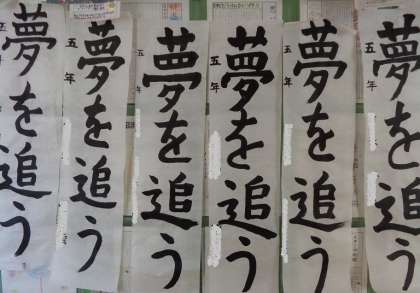 夢を追う
五年
夢を追う
五年
夢を追う
五年
夢を追う
五年
夢を追う
五年
夢を追う
五年